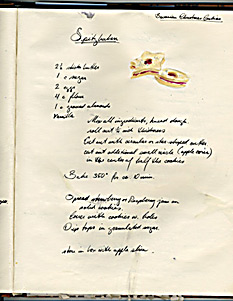 Spitzbuben
2½ sticks butter
1 c sugar
2 eggs
4 c flour
1 c ground almonds
Vanilla
Mix all ingredients, knead dough
roll out ¼ inch thickness
Cut out with scalloped or star shaped cutter
cut out additional small circle (apple corer)
in the center of half the cookies
Bake 350° for ca 10 min.
Spread strawberry or Raspberry jam on
solid cookies.
Cover with cookies w. holes
Dip tops in granulated sugar.
store in box with apple slice.